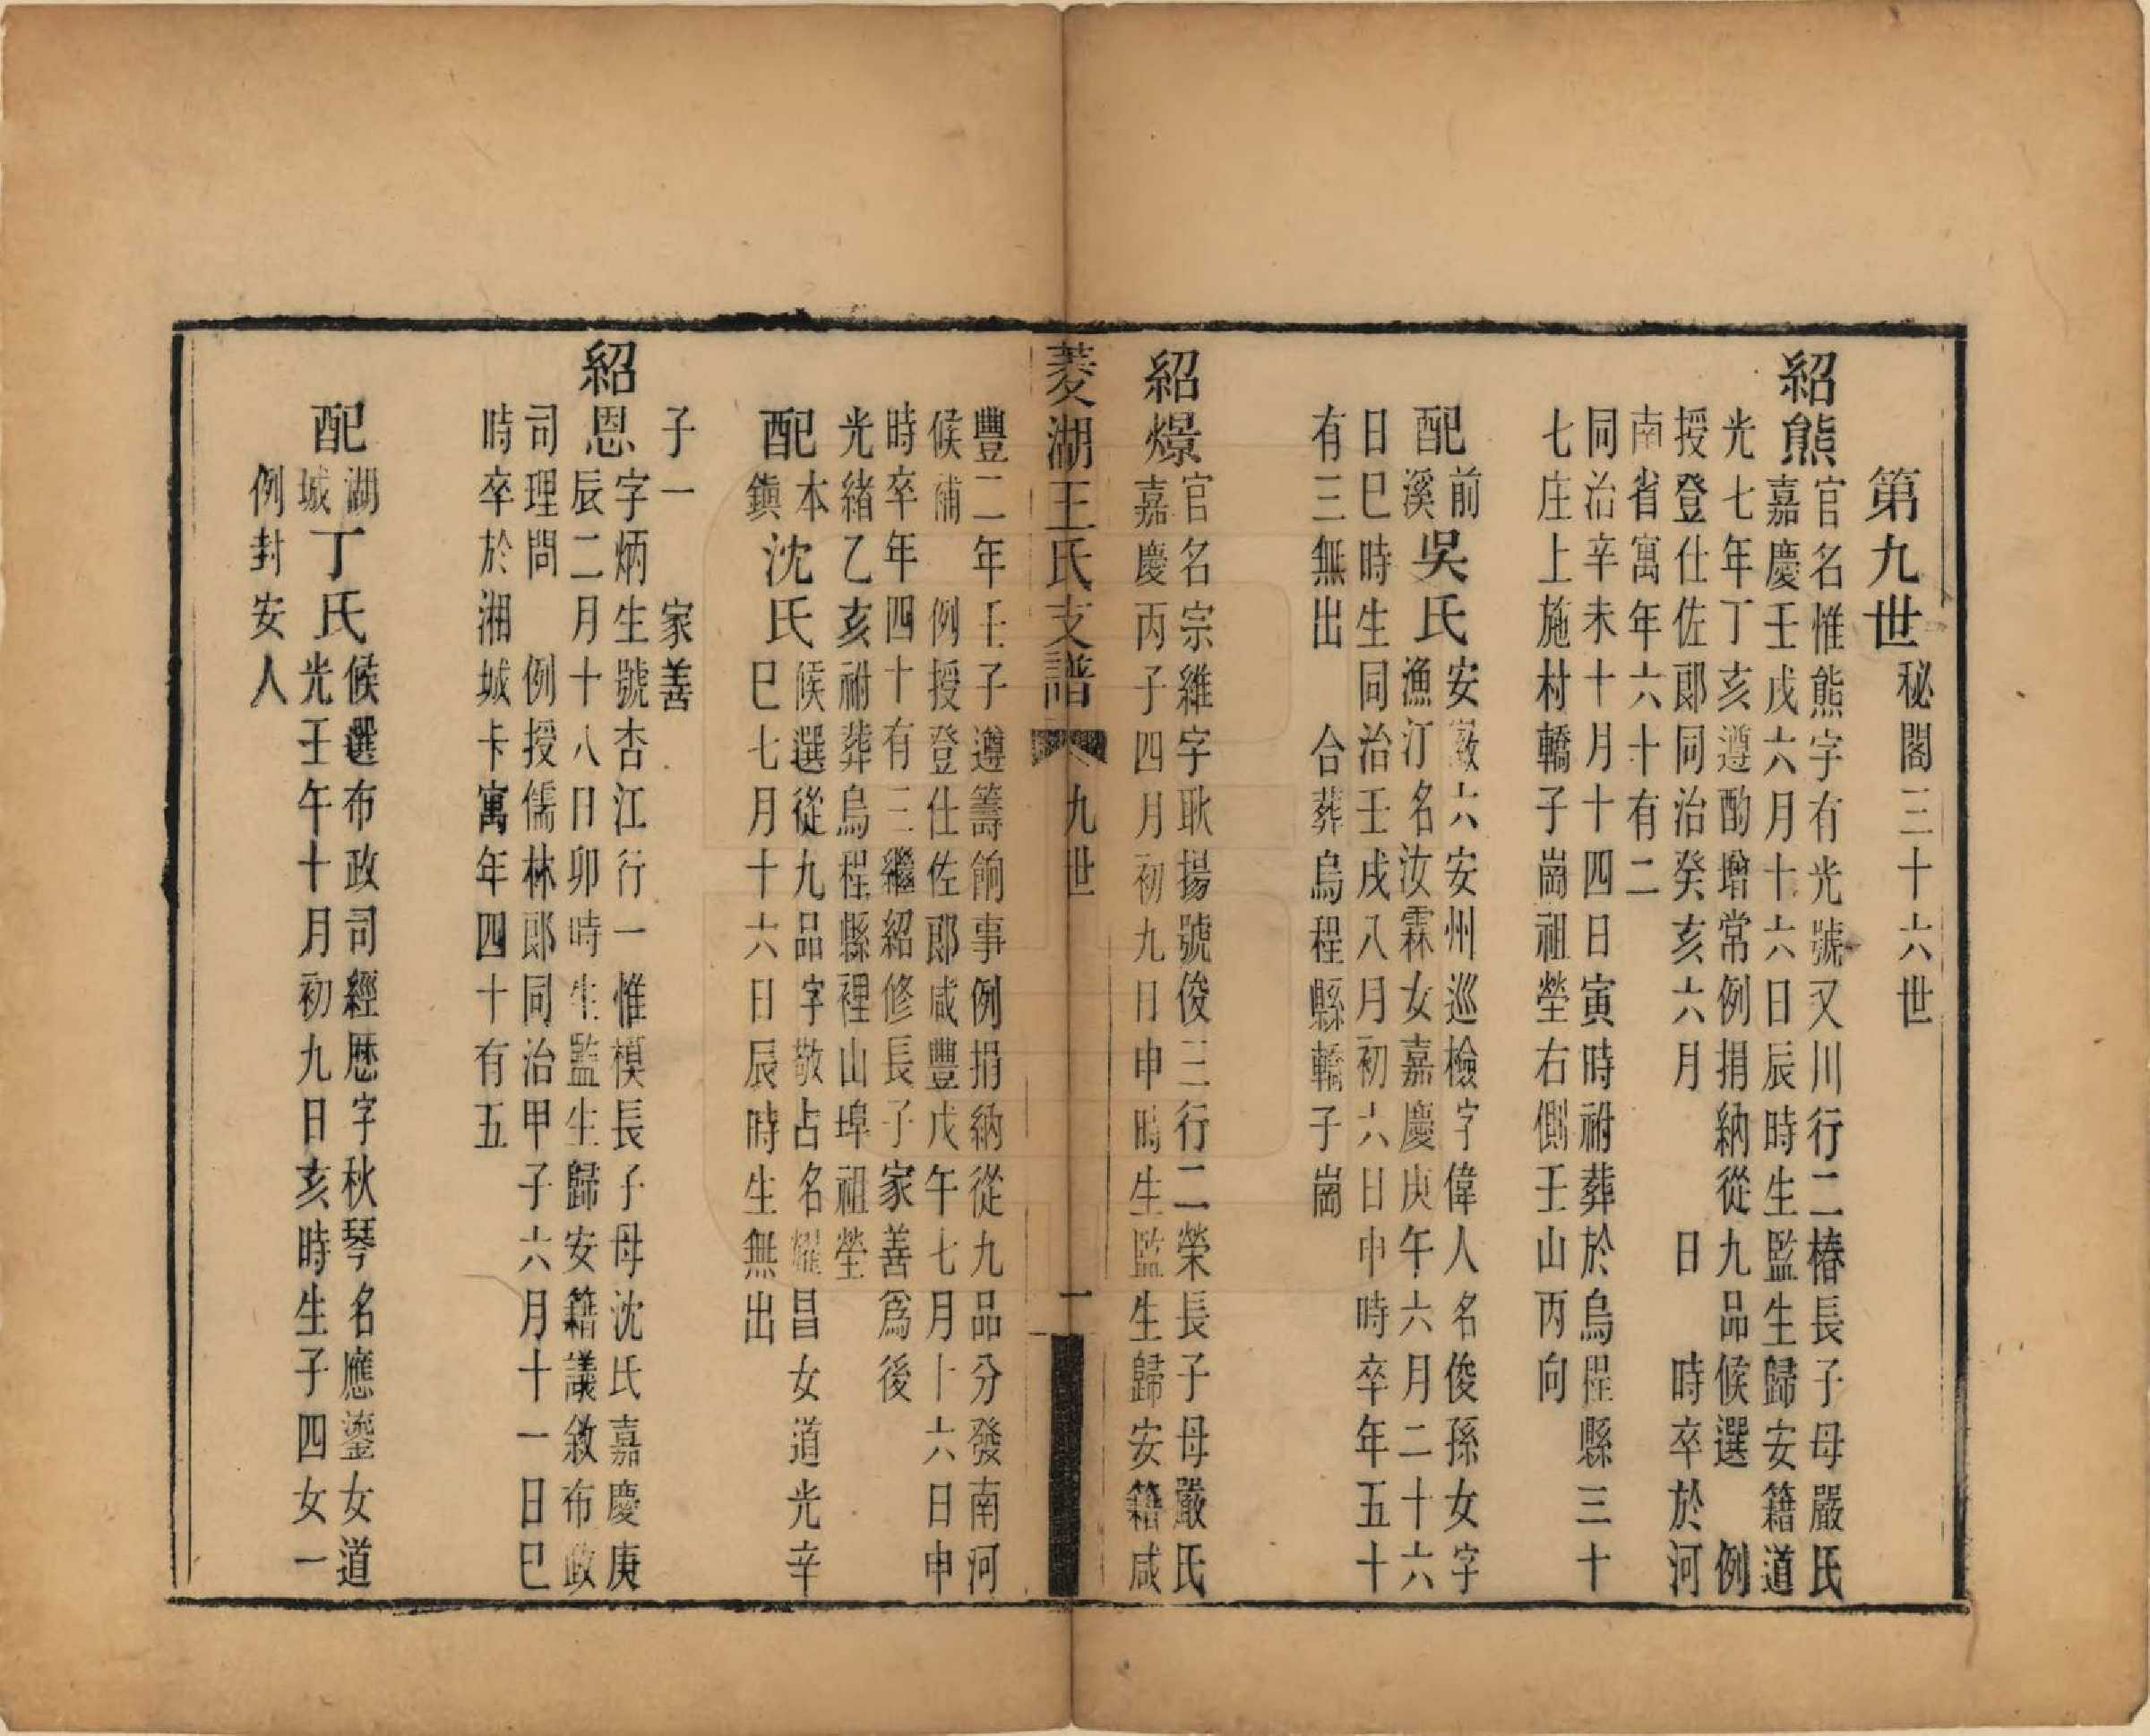 第九世 秘閣三十六世
紹熊 官名惟熊字有光號又川行二椿長子母嚴氏
嘉慶壬戌六月十六日辰時生監生歸安籍道
光七年丁亥遵酌增常例捐納從九品候選 例
授登仕佐郎同治癸亥六月 日 時卒於河
南省寓年六十有二
同治辛未十月十四日寅時祔葬於烏程縣三十
七庄上施村轎子崗祖塋右側壬山丙向
配 前溪 吳氏 安徽六安州巡檢字偉人名俊孫女字
漁汀名汝霖女嘉慶庚午六月二十六
日巳時生同治壬戌八月初六日申時卒年五十
有三無出 合葬烏程縣轎子崗
紹燝 官名宗維字耿揚號俊三行二榮長子母嚴氏
嘉慶丙子四月初九日申時生監生歸安籍咸
菱湖王氏支譜 九世 一
豐二年壬子遵籌餉事例捐納從九品分發南河
候補 例授登仕佐郎咸豐戊午七月十六日申
時卒年四十有三繼紹修長子家善爲後
光緒乙亥祔葬烏程縣裡山埠祖塋
配 本鎮 沈氏 候選從九品字敬占名耀昌女道光辛
巳七月十六日辰時生無出
子一 家善
紹恩 字炳生號杏江行一惟模長子母沈氏嘉慶庚
辰二月十八日卯時生監生歸安籍議敘布政
司理問 例授儒林郎同治甲子六月十一日巳
時卒於湘城卡寓年四十有五
配 湖城 丁氏 候選布政司經歷字秋琴名應鎏女道
光壬午十月初九日亥時生子四女一
例封安人